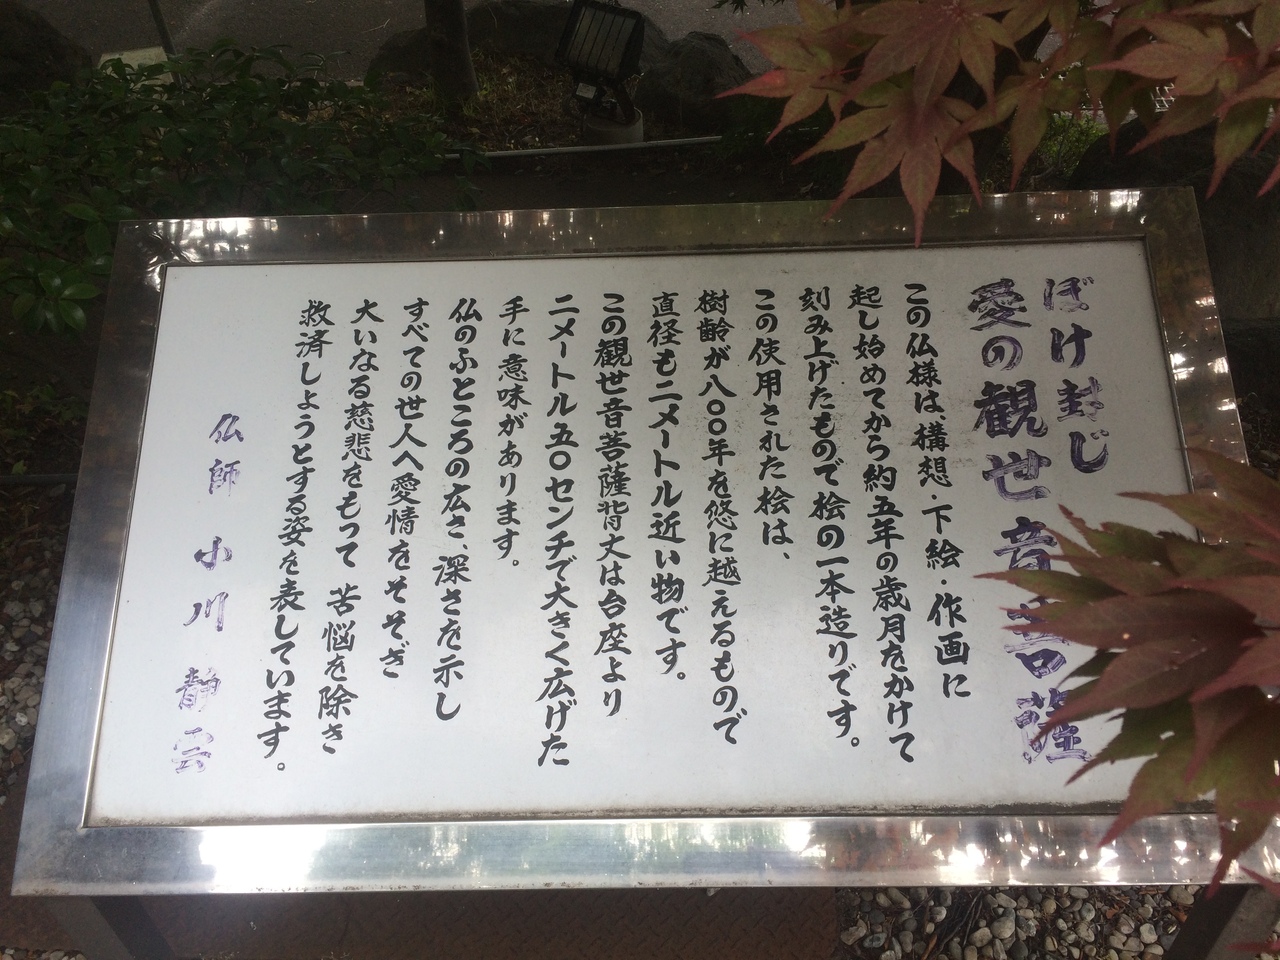 ぼけ封じ
愛の観世音菩薩
この仏様は、構想・下絵・作画に
起し始めてから約五年の歳月をかけて
刻み上げたもので桧の一本造りです。
この使用された桧は、
樹齢が八〇〇年を悠に越えるもので
直径も二メートル近い物です。
この観世音菩薩背丈は台座より
二メートル五〇センチで大きく広げた
手に意味があります。
仏のふところの広さ、深さを示し
すべての世人へ愛情をそそぎ
大いなる慈悲をもって 苦悩を除き
救済しようとする姿を表しています。
仏師 小川 静雲